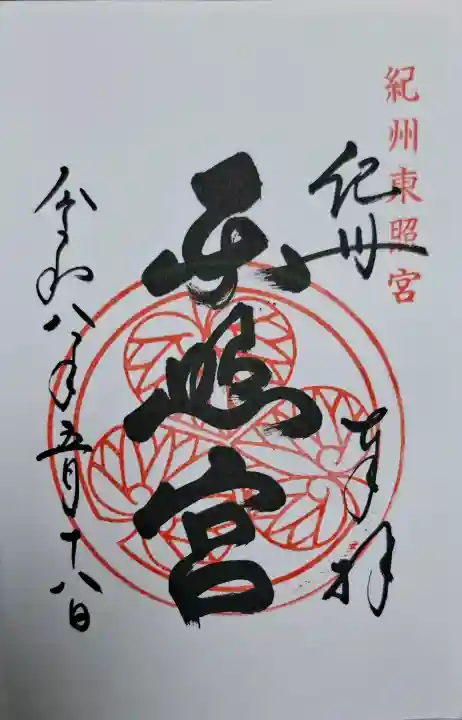 紀州東照宮
紀州
奉拝
東照宮
令和八年五月十八日